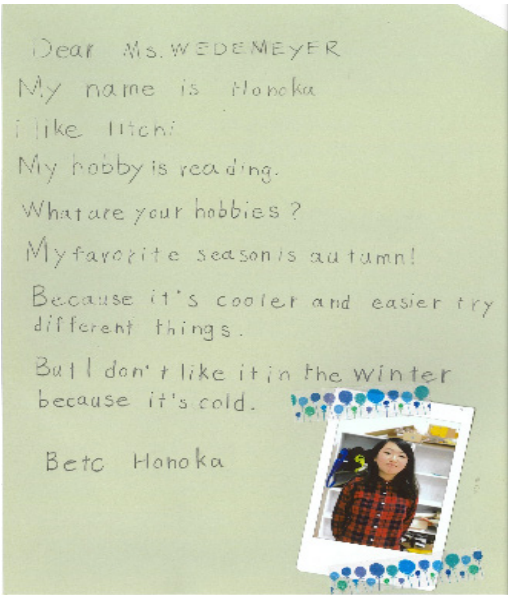 Dear Ms. WEDEMEYER
My name is Honoka
i like litchi
My hobby is reading.
What are your hobbies?
My favorite season is autumn!
Because it's cooler and easier try
different things.
But I don't like it in the winter
because it's cold.
Betc Honoka